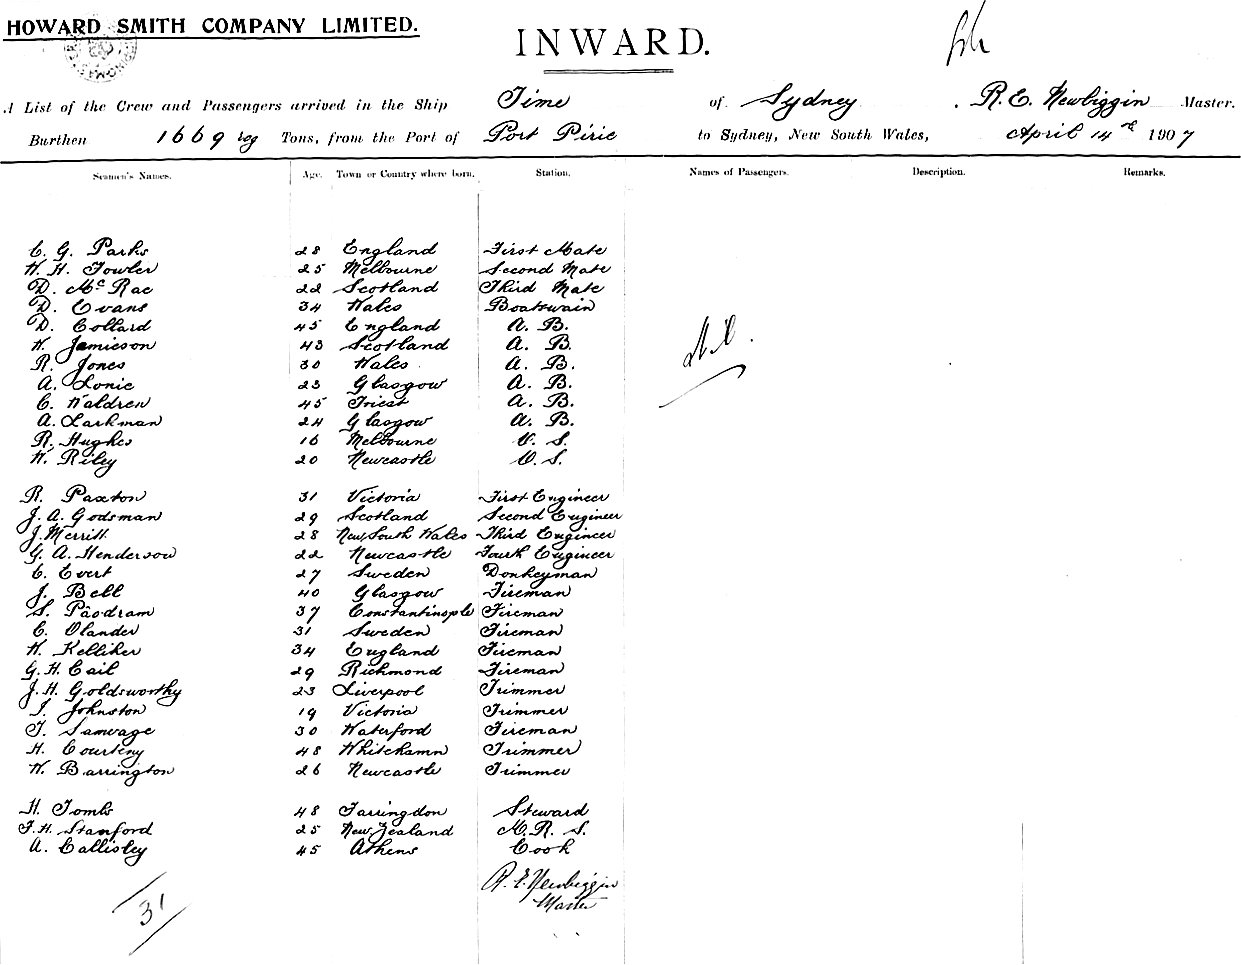 HOWARD SMITH COMPANY LIMITED.
INWARD.
A List of the Crew and Passengers arrived in the Ship Time of Sydney , R. E. Newbiggin Master.
Burthen 1669 reg Tons, from the Port of Port Pirie to Sydney, New South Wales, April 14th 1907
Seamen's Names. Age. Town or Country where born. Station. Names of Passengers. Description. Remarks.
C. G. Parks 28 England First Mate
W. H. Fowler 25 Melbourne Second Mate
D. McRae 22 Scotland Third Mate
D. Evans 34 Wales Boatswain
D. Collard 45 England A. B.
W. Jamieson 43 Scotland A. B.
R. Jones 30 Wales A. B.
A. Lonie 23 Glasgow A. B.
C. Waldren 45 Triest A. B.
A. Larkman 24 Glasgow A. B.
R. Hughes 16 Melbourne O. S.
W. Riley 20 Newcastle O. S.
R. Paxton 31 Victoria First Engineer
J. A. Godsman 29 Scotland Second Engineer
J. Merrill 28 New South Wales Third Engineer
G. A. Henderson 22 Newcastle Fourth Engineer
C. Evert 27 Sweden Donkeyman
J. Bell 40 Glasgow Fireman
S. Paodram 37 Constantinople Fireman
C. Olander 31 Sweden Fireman
W. Kelliher 34 England Fireman
G. H. Cail 29 Richmond Fireman
J. H. Goldsworthy 23 Liverpool Trimmer
J. Johnston 19 Victoria Trimmer
T. Samvage 30 Waterford Fireman
H. Courteny 48 Whitehamn Trimmer
W. Barrington 26 Newcastle Trimmer
H. Tombs 48 Farringdon Steward
F. H. Stanford 25 New Zealand M. R. S.
A. Callisley 45 Athens Cook
R. E. Newbiggin
Master
31